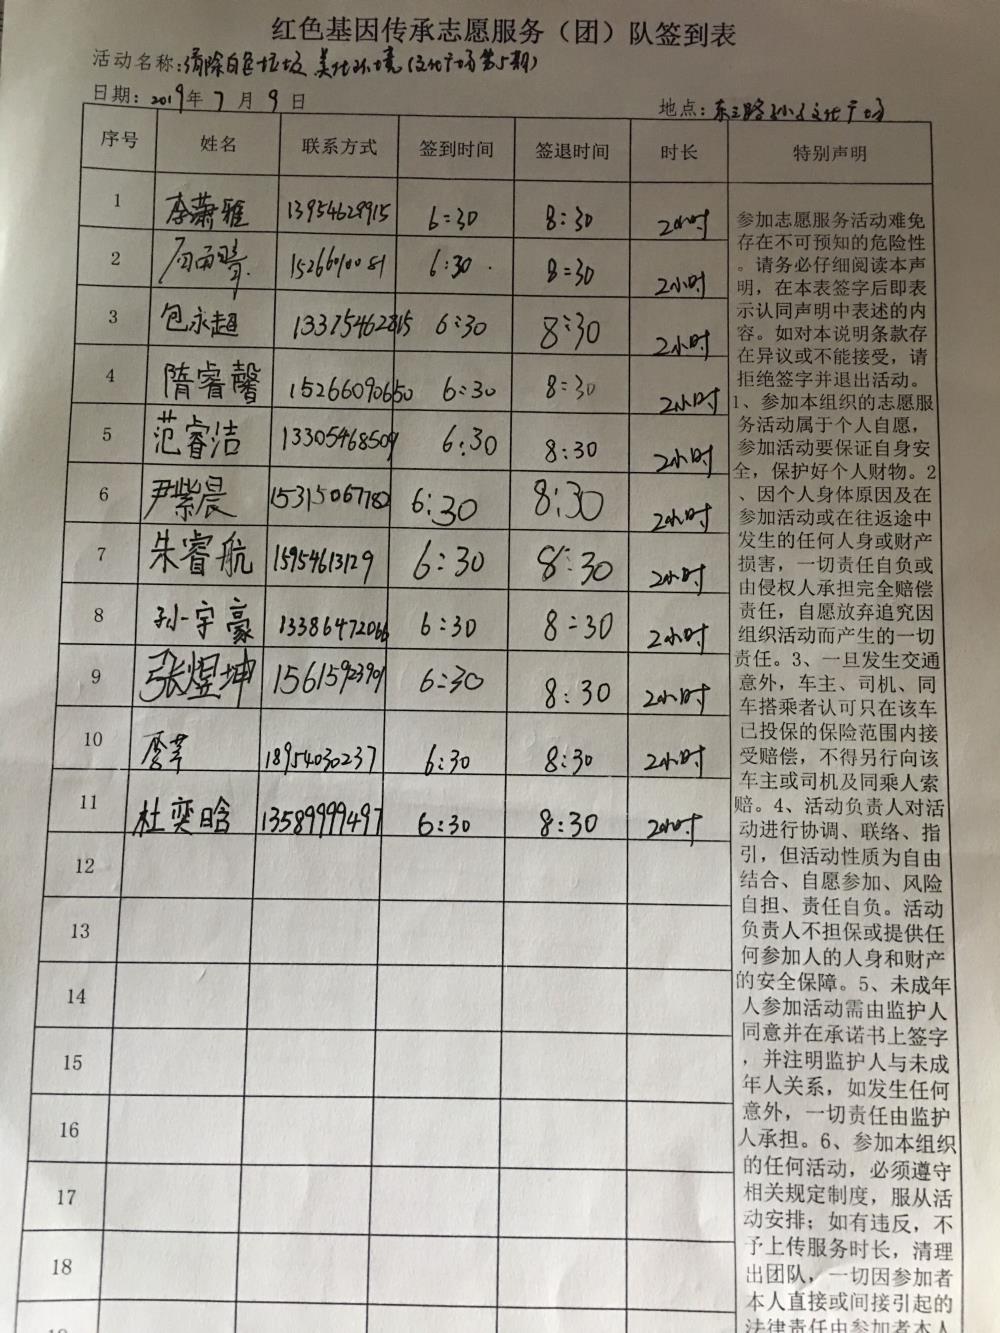 红色基因传承志愿服务（团）队签到表
活动名称：清除白色垃圾 美化环境（文化广场第5期）
日期：2019年7月9日 地点：东三路孙子文化广场
序号 姓名 联系方式 签到时间 签退时间 时长 特别声明
1 李萧雅 13954629915 6:30 8:30 2小时
2 15266010081 6:30 8:30 2小时
3 包永超 13375462815 6:30 8:30 2小时
4 隋睿馨 15266090650 6:30 8:30 2小时
5 范睿洁 13305468509 6:30 8:30 2小时
6 尹紫晨 15315067782 6:30 8:30 2小时
7 朱睿航 15954613129 6:30 8:30 2小时
8 孙宇豪 13386472066 6:30 8:30 2小时
9 张煜坤 15615923901 6:30 8:30 2小时
10 18954030237 6:30 8:30 2小时
11 杜奕晗 13589999497 6:30 8:30 2小时
12
13
14
15
16
17
18
参加志愿服务活动难免
存在不可预知的危险性
。请务必仔细阅读本声
明，在本表签字后即表
示认同声明中表述的内
容。如对本说明条款存
在异议或不能接受，请
拒绝签字并退出活动。
1、参加本组织的志愿服
务活动属于个人自愿，
参加活动要保证自身安
全，保护好个人财物。2
、因个人身体原因及在
参加活动或在往返途中
发生的任何人身或财产
损害，一切责任自负或
由侵权人承担完全赔偿
责任，自愿放弃追究因
组织活动而产生的一切
责任。3、一旦发生交通
意外，车主、司机、同
车搭乘者认可只在该车
已投保的保险范围内接
受赔偿，不得另行向该
车主或司机及同乘人索
赔。4、活动负责人对活
动进行协调、联络、指
引，但活动性质为自由
结合、自愿参加、风险
自担、责任自负。活动
负责人不担保或提供任
何参加人的人身和财产
的安全保障。5、未成年
人参加活动需由监护人
同意并在承诺书上签字
，并注明监护人与未成
年人关系，如发生任何
意外，一切责任由监护
人承担。6、参加本组织
的任何活动，必须遵守
相关规定制度，服从活
动安排；如有违反，不
予上传服务时长，清理
出团队，一切因参加者
本人直接或间接引起的
法律责任由参加者本人